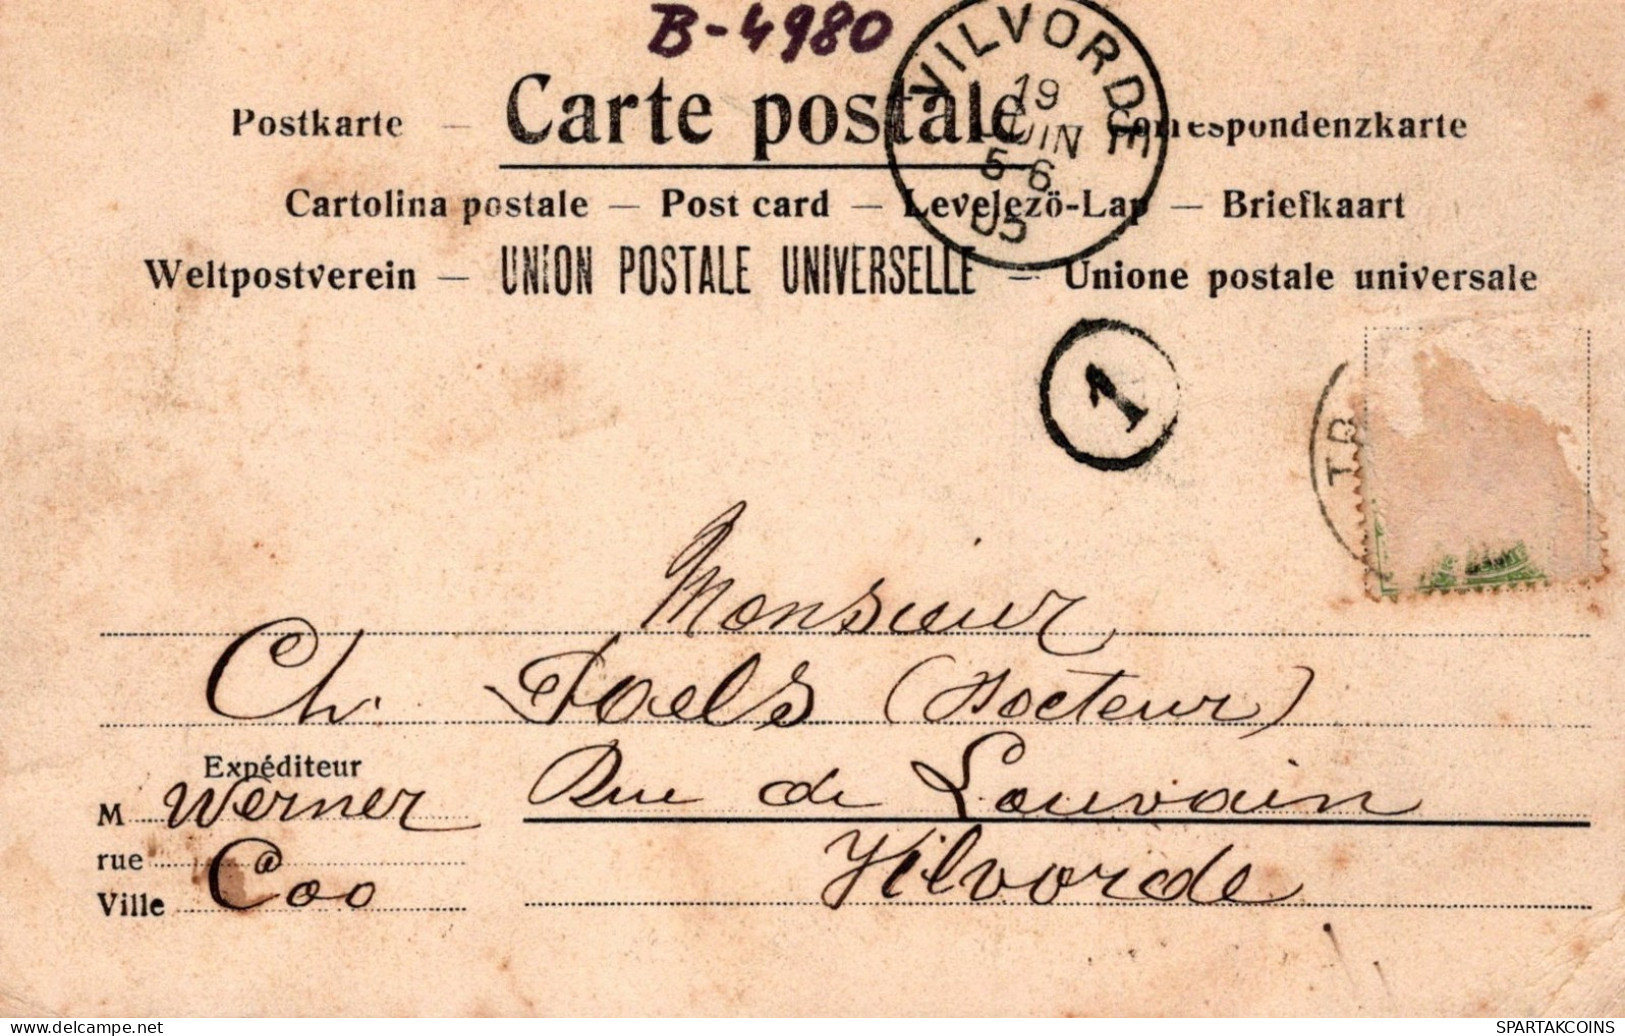 B-4980
VILVORDE
19
JUIN
5-6
05
Postkarte – Carte postale – Correspondenzkarte
Cartolina postale – Post card – Levelezö-Lap – Briefkaart
Weltpostverein – UNION POSTALE UNIVERSELLE – Unione postale universale
1
Monsieur
Ch. (Docteur)
Expéditeur
M Werner Rue de Louvain
rue
Ville Coo Vilvorde
SPARTAKCOINS
https://www.delcampe.net
SPARTAKCOINS